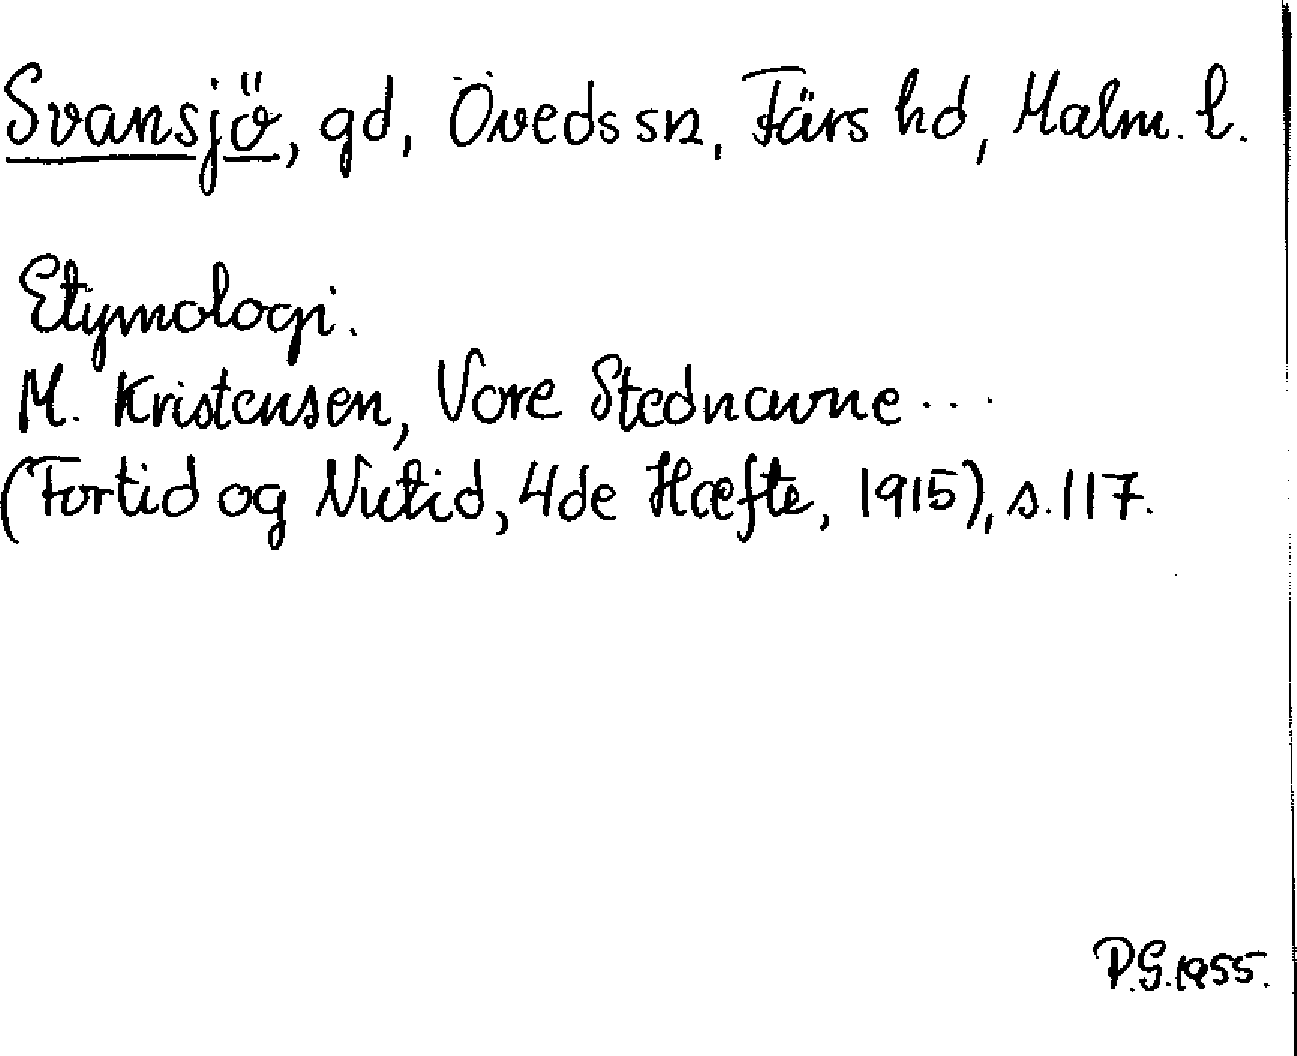 Svansjö, gd, Öveds sn, Färs hd, Malm. l.
Etymologi.
M. Kristensen, Vore Stednavne...
(Fortid og Nutid, 4de Hæfte, 1915), s. 117.
P.G. 1955.